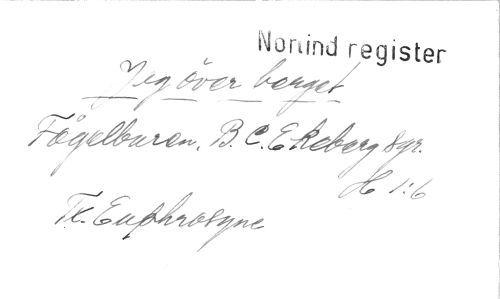 Norlind register
Jeg över berget
Fågelburen. B. C. Ekeberg syr.
H 1:6
Tx. Euphrosyne